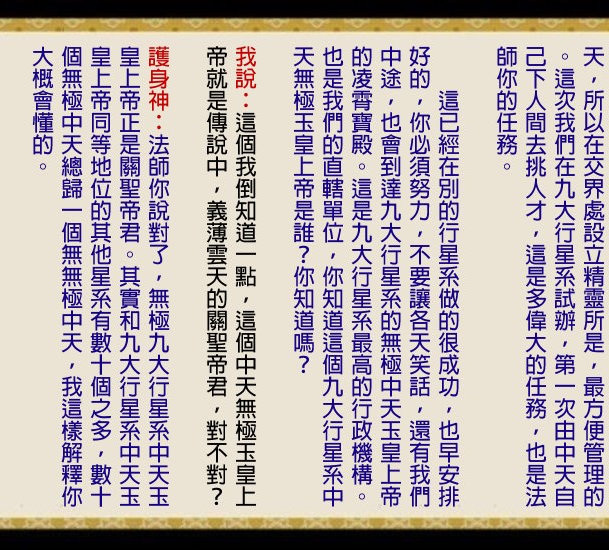 天，所以在交界處設立精靈所是，最方便管理的
。這次我們在九大行星系試辦，第一次由中天自
己下人間去挑人才，這是多偉大的任務，也是法
師你的任務。
這已經在別的行星系做的很成功，也早安排
好的，你必須努力，不要讓各天笑話，還有我們
中途，也會到達九大行星系的無極中天玉皇上帝
的凌霄寶殿。這是九大行星系最高的行政機構。
也是我們的直轄單位，你知道這個九大行星系中
天無極玉皇上帝是誰？你知道嗎？
我說：這個我倒知道一點，這個中天無極玉皇上
帝就是傳說中，義薄雲天的關聖帝君，對不對？
護身神：法師你說對了，無極九大行星系中天玉
皇上帝正是關聖帝君。其實和九大行星系中天玉
皇上帝同等地位的其他星系有數十個之多，數十
個無極中天總歸一個無無極中天，我這樣解釋你
大概會懂的。